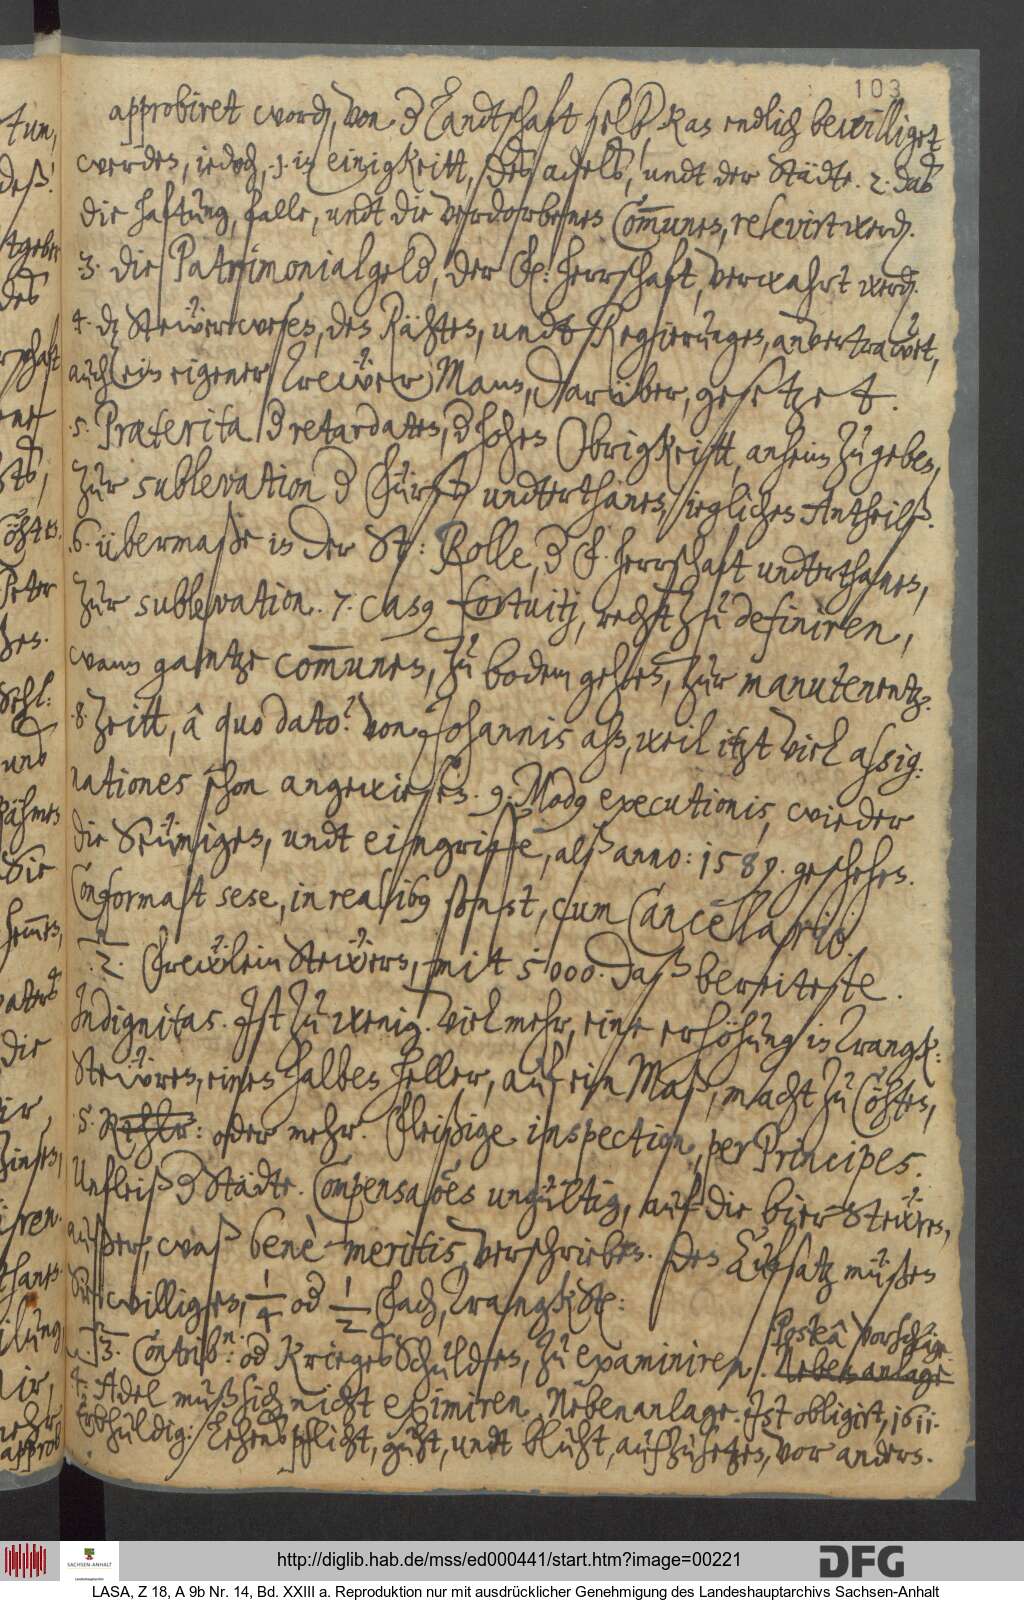 103
approbiret word, von d Landtschafft selb. Kan endlich bewilliget
werden, iedoch, .1. in einigkeitt, des adels, undt der Städte. 2. das
die hafftung, falle, undt die verdorbenen Com̄unen, relevirt werd.
3. die Patrimonialgeld, der F: herrschafft, verwahrt werd.
4. dz Steẅerwesen, den Rähten, undt Regierungen, anvertrawet,
auch ein eigener Treẅer Mann, darüber, gesetzet.
.5. Præterita d retardaten, d hohen Obrigkeitt, anheim zu geben,
zur sublevation d Fürstl: undterthanen, iegliches Antheilß.
.6. übermaße in der St: Rolle, d F. herrschafft undterthanen,
zur sublevation. 7. casq fortuitj, recht zu definiren,
wann gantze com̄unen, zu bodem gehen, zur manutenentz.
.8. Zeitt, â quo dato? von Johannis ahn, weil itzt viel assig:
nationes schon angewiesen. 9. Modq executionis, wieder
die Seümigen, undt eingriffe, alß anno: 1589. geschehen.
Conformast sese, in realibq sonst, cum Cancellario.
.2. Freẅlein Steẅern, mit 5000. daß bereiteste.
Indignitas. Ist zu wenig. Viel mehr, eine erhöhung in Trangk:
Steẅren, eines halben heller, auf ein Maß, macht zu Cöhten,
.5. Rthlr: oder mehr. Fleißige inspection, per Principes.
Unfleiß d Städte. Compensaõen ungültig, auf die bier Steẅren,
außer, waß benè meritis, verschrieben. Den Aufsatz müßen
Sie willigen, 1/4 od 1/2 fach, Trangk St:
.3. Contribn: od Kriegesschulden, zu examiniren. Posteâ Vorschläge.
Neben anlage
.4. Adel muß sich nicht eximiren. Nebenanlage. Ist obligirt, 1611.
Erbhuldig: Lehenspflicht, guht, undt bluht, aufzusetzen, vor andern.
http://diglib.hab.de/mss/ed000441/start.htm?image=00221
DFG
SACHSEN-ANHALT
LASA, Z 18, A 9b Nr. 14, Bd. XXIII a. Reproduktion nur mit ausdrücklicher Genehmigung des Landeshauptarchivs Sachsen-Anhalt